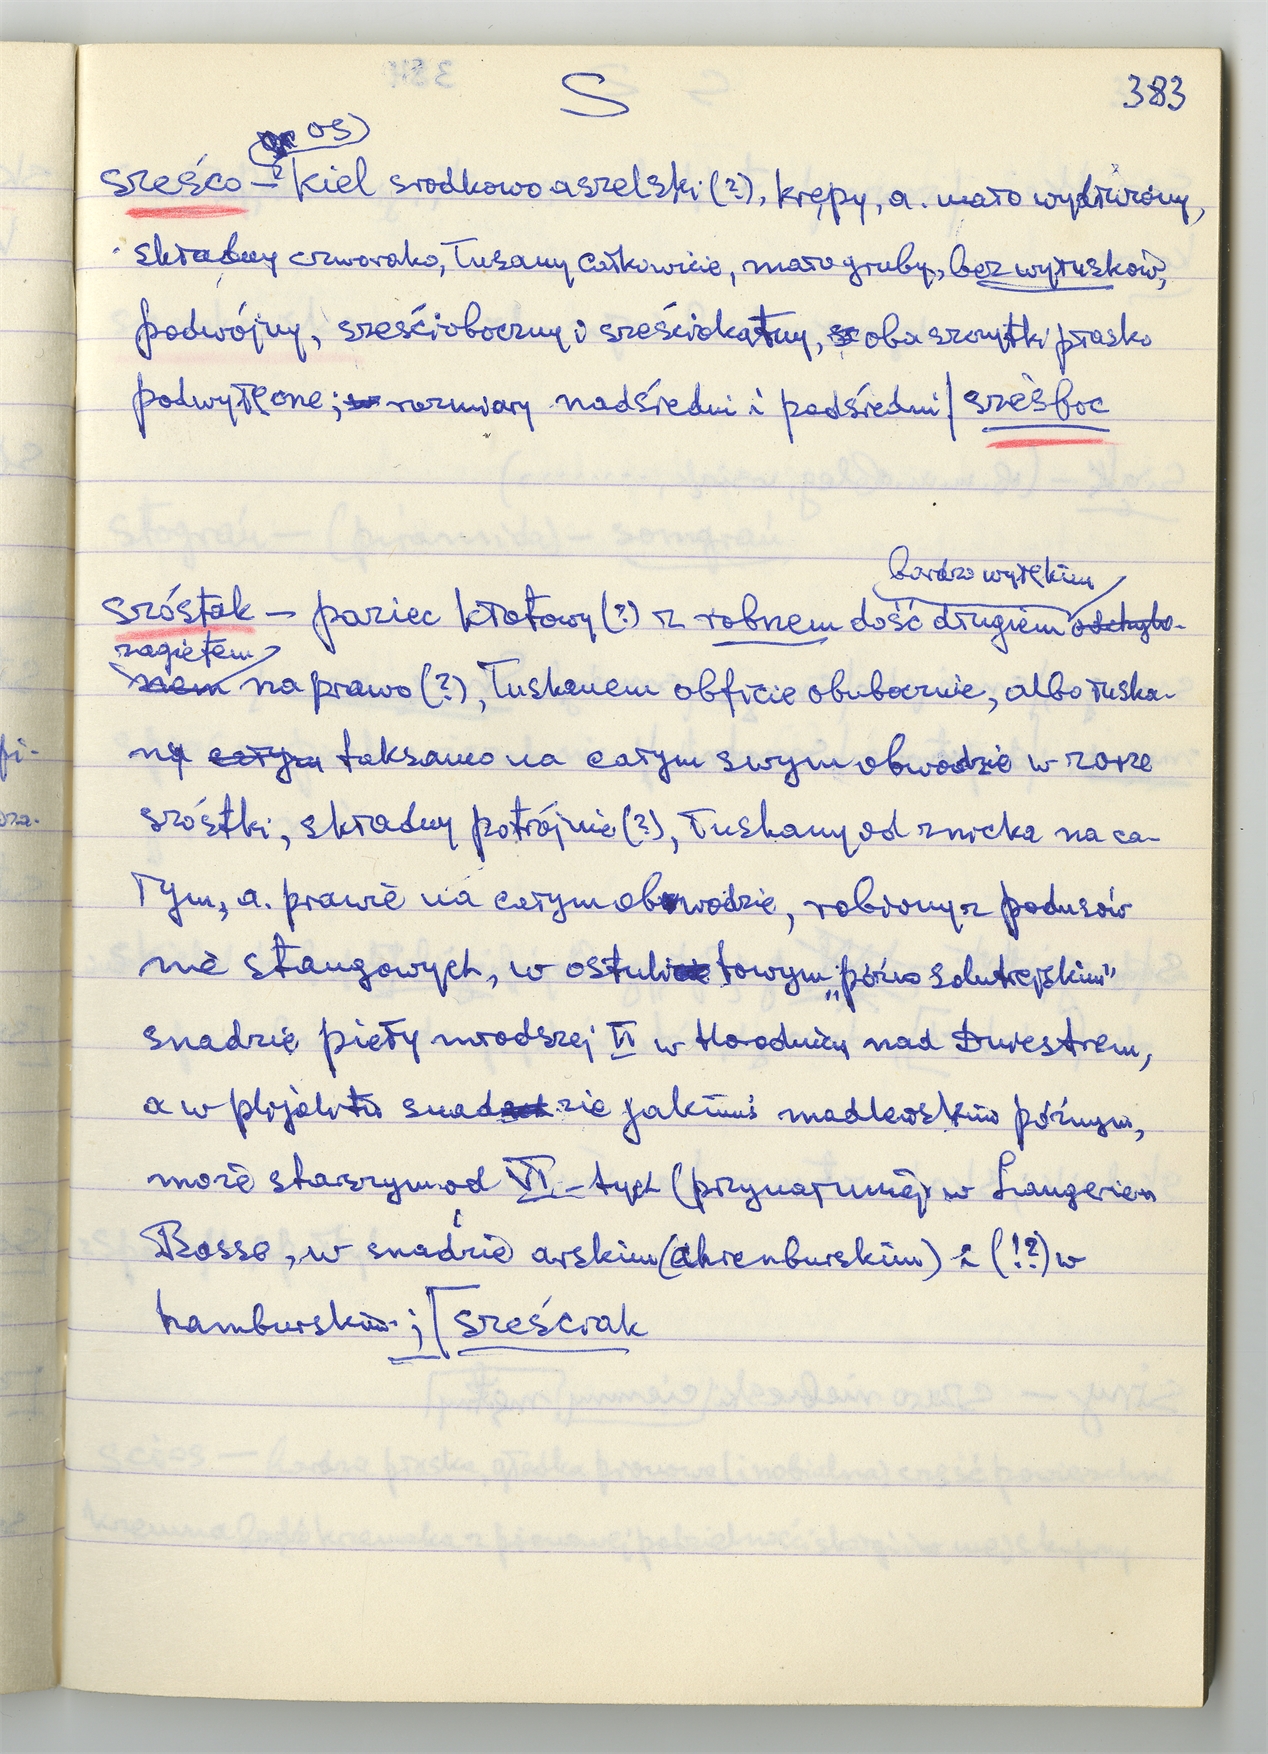 S 383
os)
sześćo – kiel środkowo aszelski (?), krępy, a. mało wydłużony,
składny czworako, łuszany całkowicie, mało gruby, bez wyłusków,
podwójny, sześcioboczny i sześciokątny, oba szczytki płasko
podwyłęone; rozmiary nadśredni i podśredni / sześboc
bardzo wyłękim
szóstak – paziec kłotowy (?) z robzem dość długiem odchylo-
zagiętem
niem na prawo (?), łuskanem obficie obubocznie, albo łuska-
ną całym taksamo na całym swym obwodzie w zorze
szóstki, składny potrójnie (?), łuskany od znicka na ca-
łym, a. prawie na całym obwodzie, robiony z podusów
nie stangowych, w ostuli towym „późno solutrejskim"
snadzie pięty młodszej VI w Horodnicy nad Dniestrem,
a w plyjoli tu snadzie jakimś madleńskim późnym,
może starszym od VI–tych (przynajmniej w Laugerie
Basse, w snadzie arskim (ahrenburskim) i (!?) w
hamburskim ; / sześciak